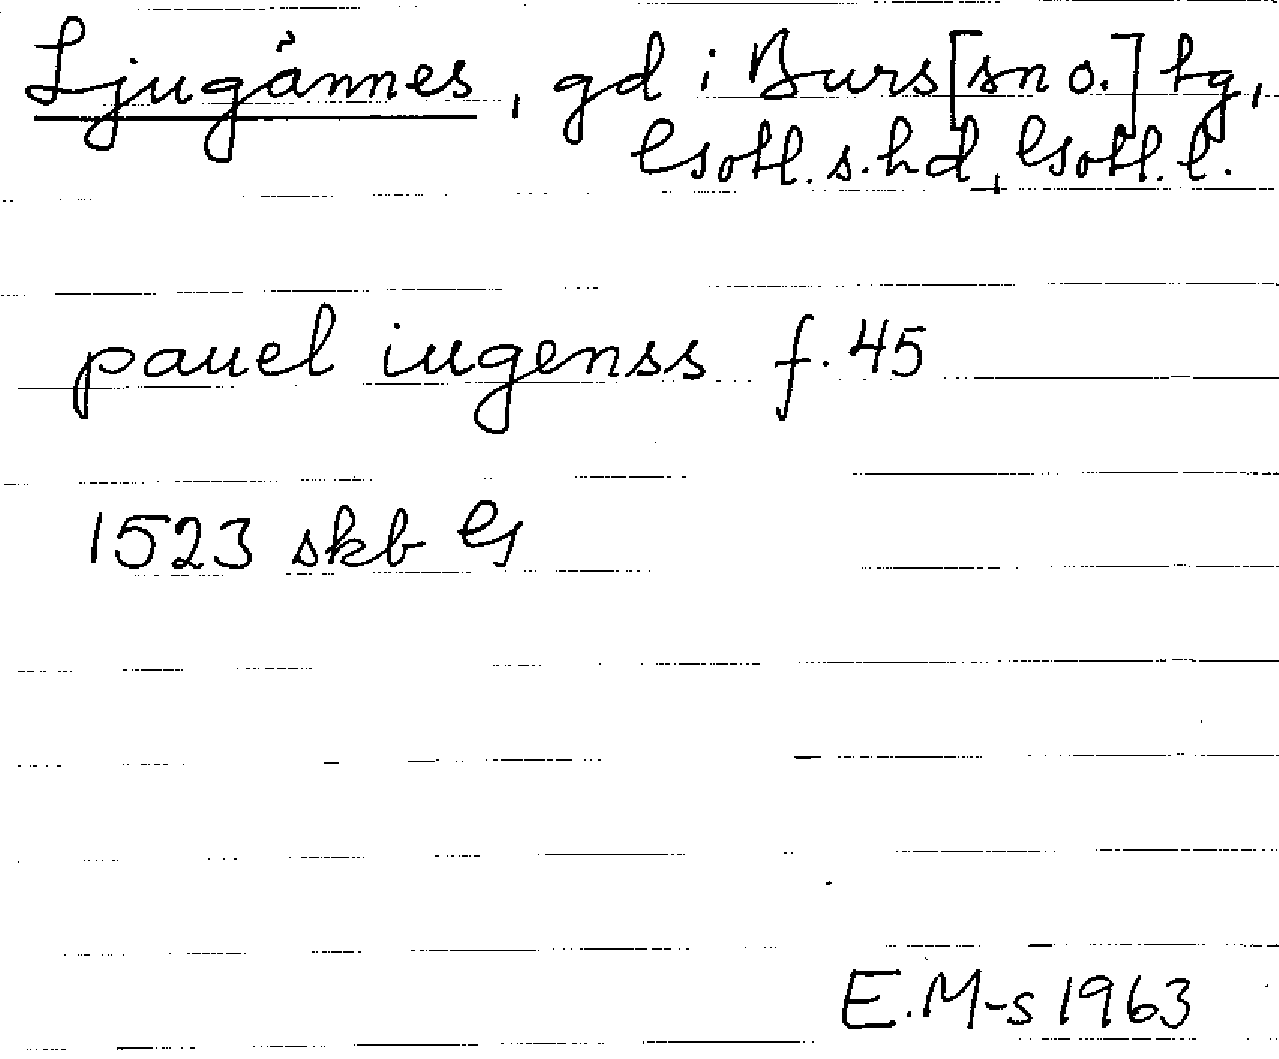 Ljugánnes, gd i Burs [sn o.] tg,
Gotl. s. hd, Gotl. l.
pauel iugenss f. 45
1523 skb G
E.M-s 1963